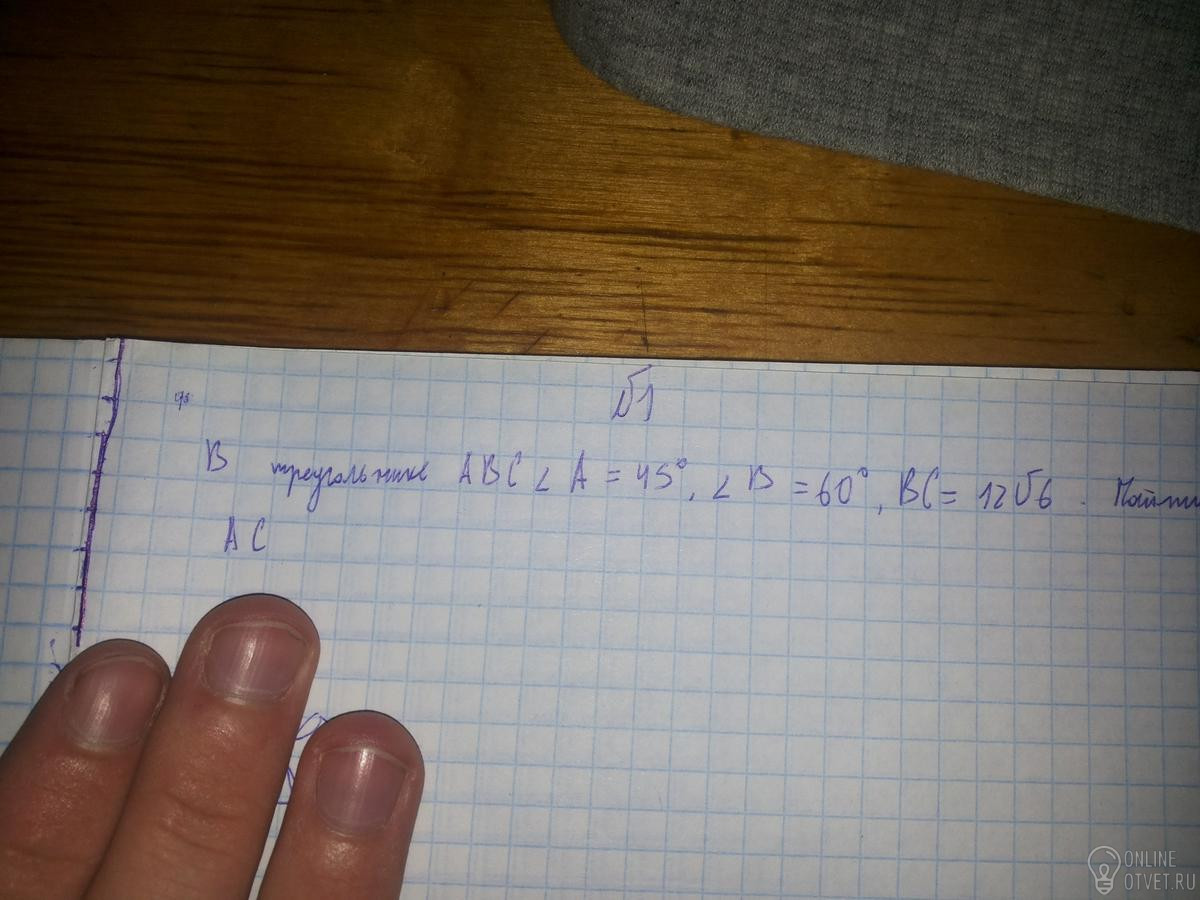 √1
В треугольнике ABC ∠ A = 45°, ∠ B = 60°, BC = 12√6. Найти
AC
ONLINE
OTVET.RU